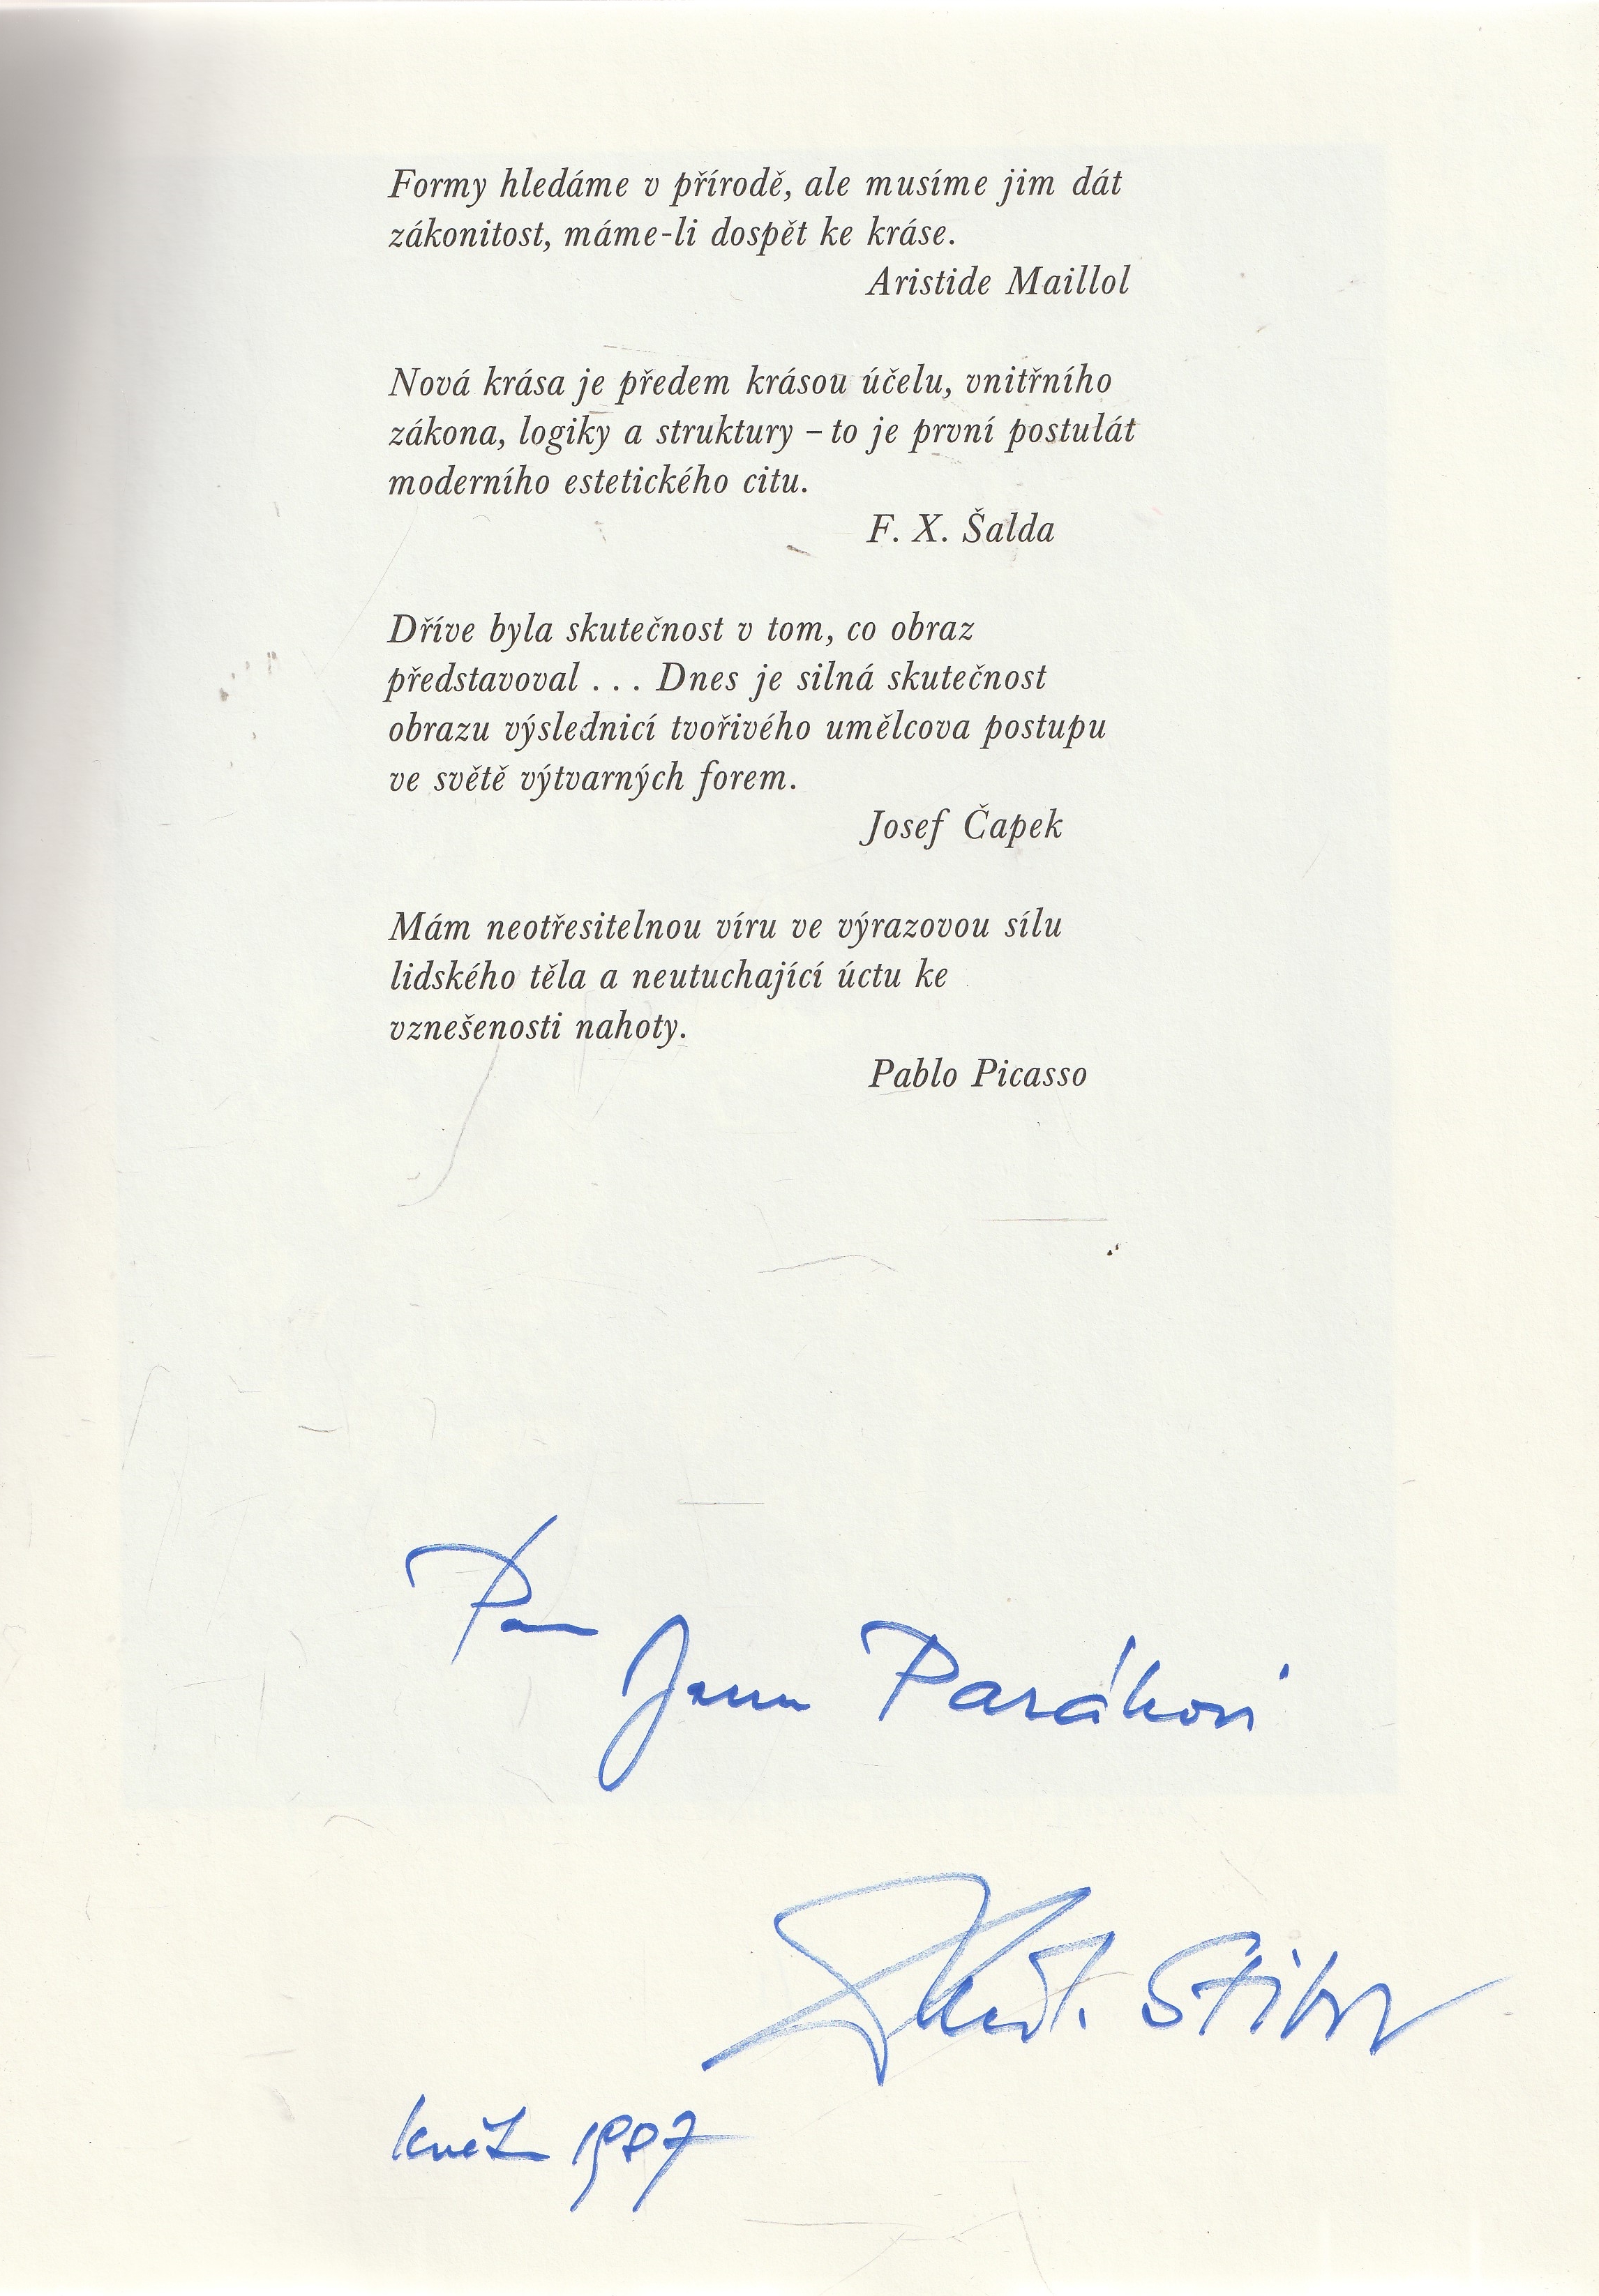 Formy hledáme v přírodě, ale musíme jim dát
zákonitost, máme-li dospět ke kráse.
Aristide Maillol
Nová krása je předem krásou účelu, vnitřního
zákona, logiky a struktury – to je první postulát
moderního estetického citu.
F. X. Šalda
Dříve byla skutečnost v tom, co obraz
představoval . . . Dnes je silná skutečnost
obrazu výslednicí tvořivého umělcova postupu
ve světě výtvarných forem.
Josef Čapek
Mám neotřesitelnou víru ve výrazovou sílu
lidského těla a neutuchající úctu ke
vznešenosti nahoty.
Pablo Picasso
Janu
1987